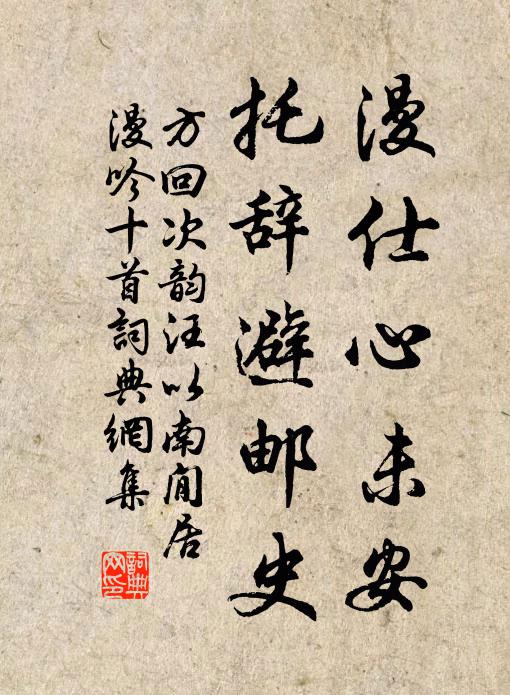 漫仕心未安
托辞避邮史
方回次韵汪以南閒居
漫吟十首詞典網集
詞典
网印